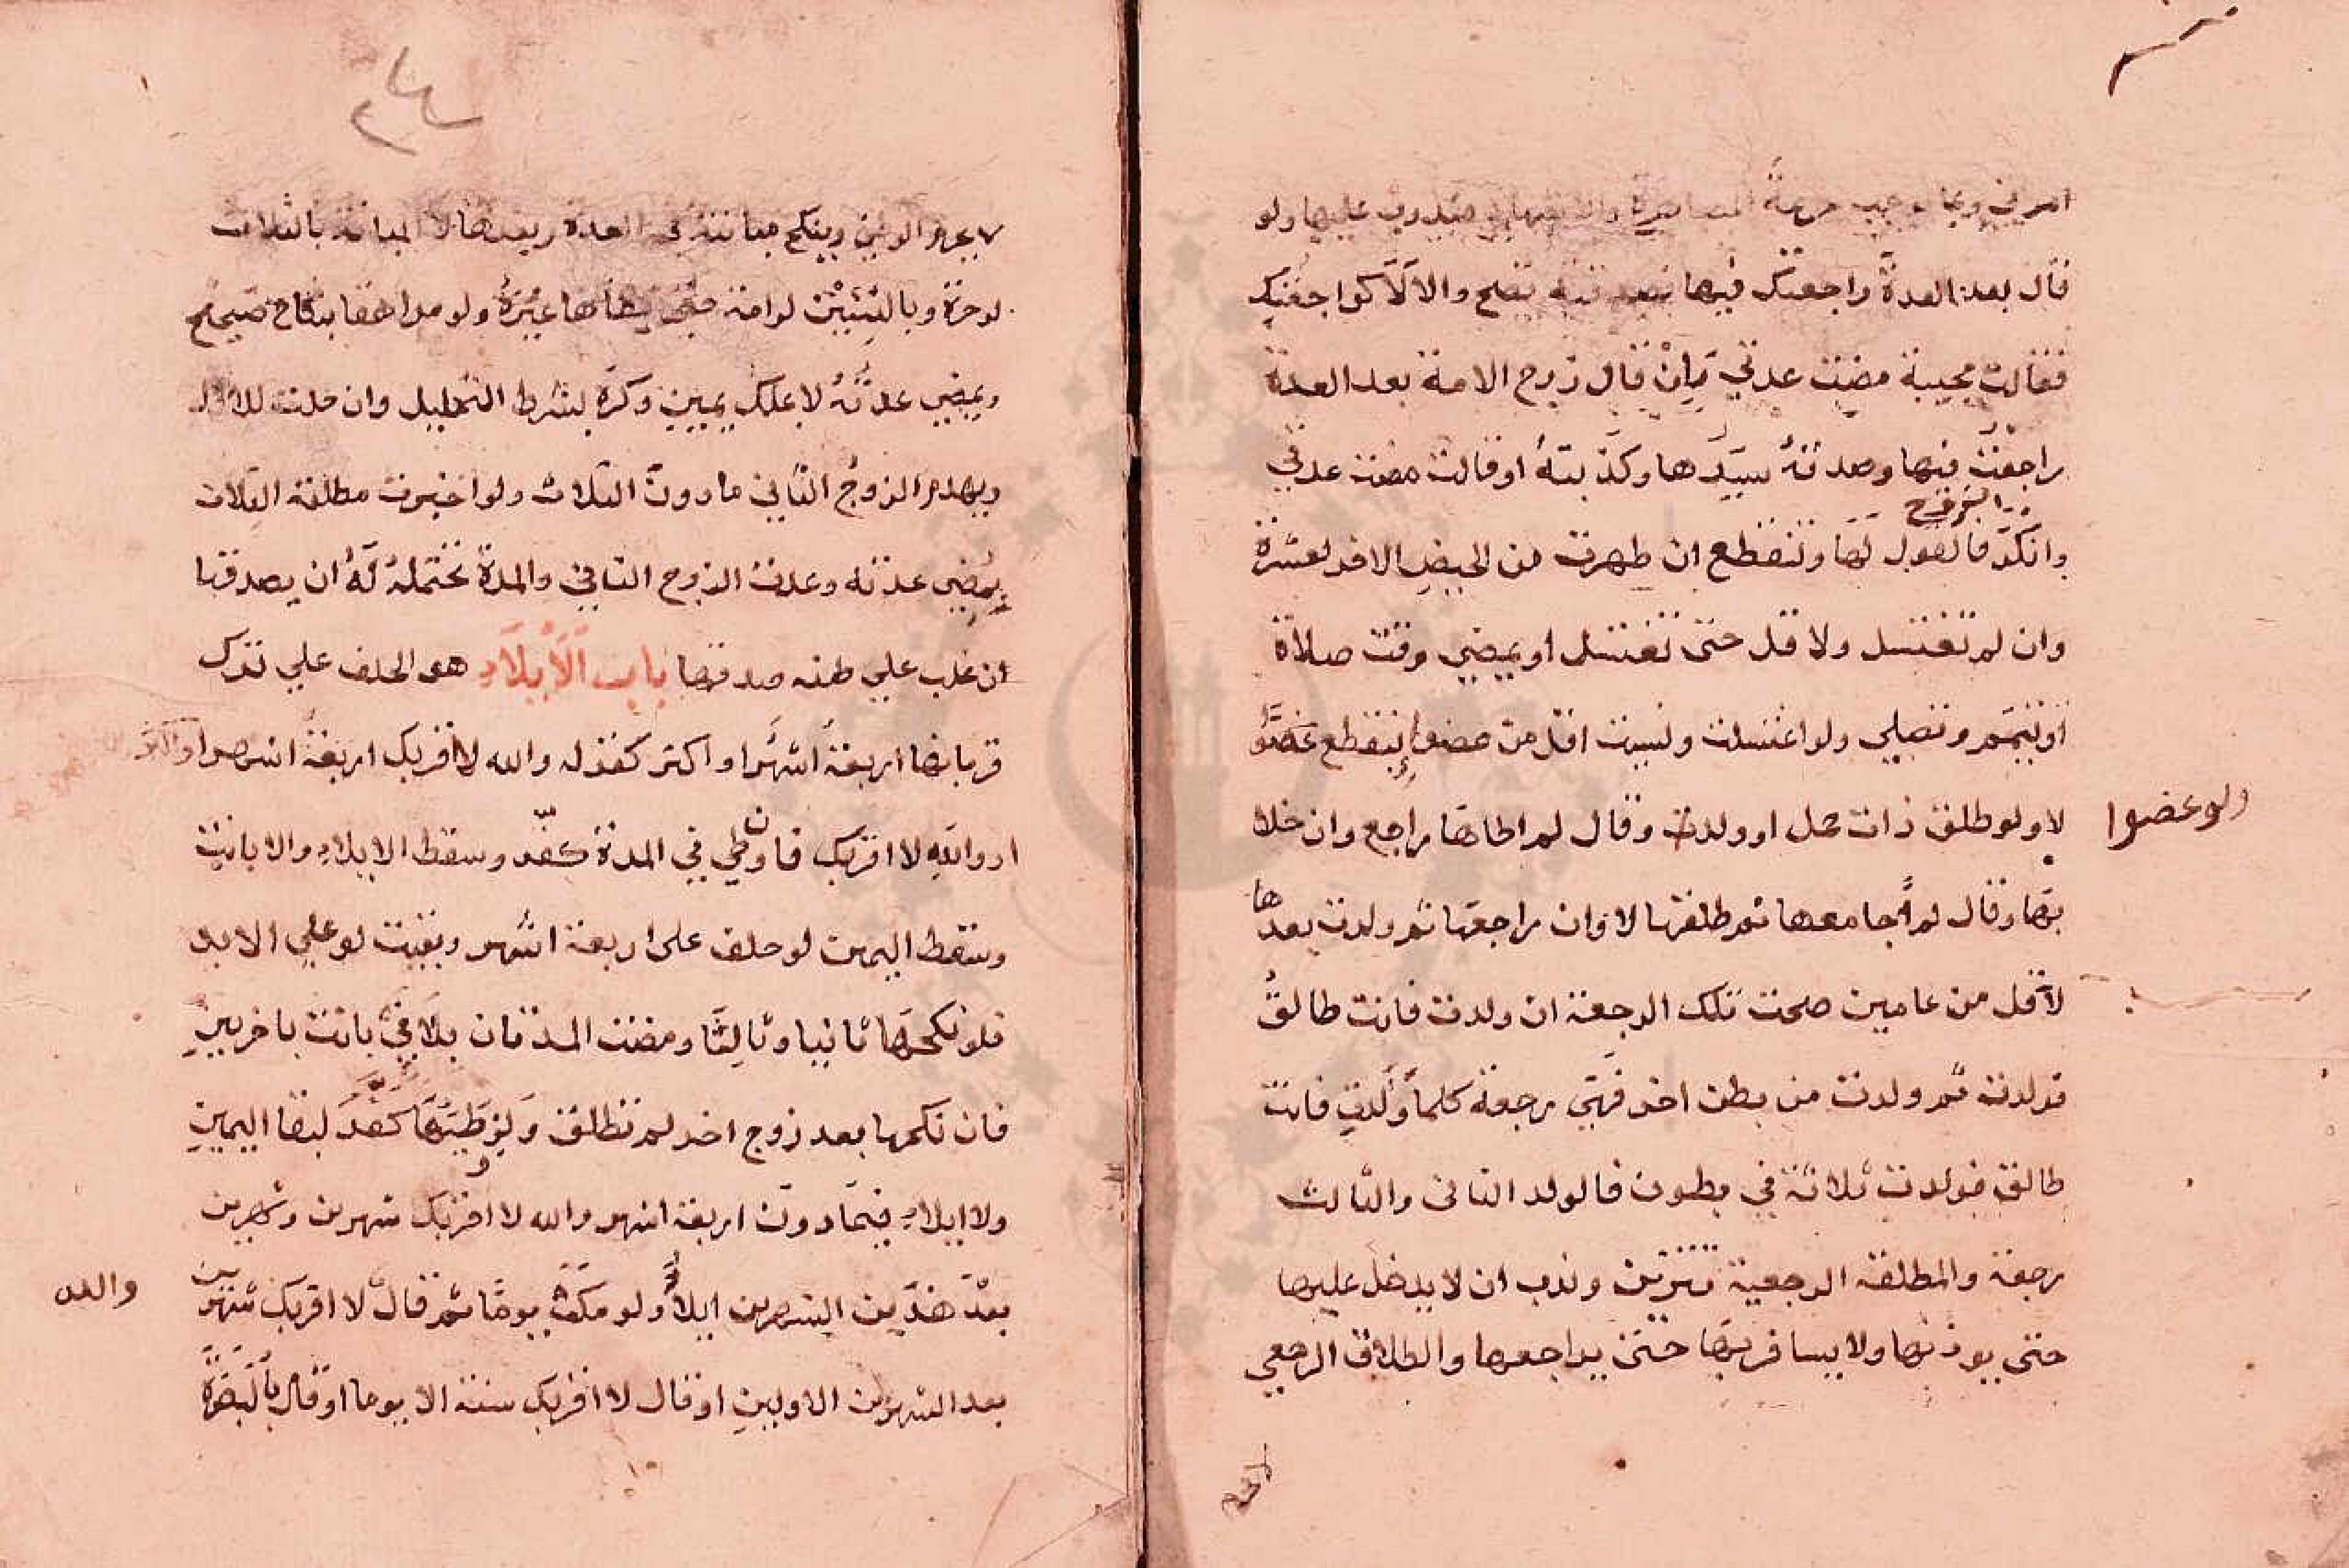 امرتي وبما يوجب حرمة المصاهرة والاشهاد مندوب عليها ولو
قال بعد العدة راجعتك فيها فصدقته تصح والا لا كراجعتك
فقالت مجيبة مضت عدتي وان قال زوج الامة بعد العدة
راجعت فيها وصدقه سيدها وكذبته او قالت مضت عدتي
وانكر الزوج فالقول لها وتنقطع ان طهرت من الحيض الاخر لعشرة
وان لم تغتسل ولاقل حتى تغتسل او يمضي وقت صلاة
او تتيمم وتصلي ولو اغتسلت ونسيت اقل من عضو تنقطع ولو عضوا
لا ولو طلق ذات حمل او ولدت وقال لم اطاها راجع وان خلا
بها وقال لم اجامعها ثم طلقها لا وان راجعها ثم ولدت بعدها
لاقل من عامين صحت تلك الرجعة ان ولدت فانت طالق
فولدت ثم ولدت من بطن اخر فهي رجعة كلما ولدت فانت
طالق فولدت ثلاثة في بطون فالولد الثاني والثالث
رجعة والمطلقة الرجعية تتزين وندب ان لا يدخل عليها
حتى يوذنها ولا يسافر بها حتى يراجعها والطلاق الرجعي
لا يحرم
٢٤
لا يحرم الوطئ وينكح مبانته في العدة وبعدها لا المبانة بالثلاث
لو حرة وبالثنتين لو امة حتى يطاها غيره ولو مراهقا بنكاح صحيح
ويمضي عدته لا بملك يمين وكره بشرط التحليل وان حلت للاول
ويهدم الزوج الثاني ما دون الثلاث ولو اخبرت مطلقة الثلاث
بمضي عدته وعدت الزوج الثاني والمدة تحتمله له ان يصدقها
ان غلب علي ظنه صدقها باب الايلاد هو الحلف علي ترك
قربانها اربعة اشهر او اكثر كقوله والله لا اقربك اربعة اشهر او اكثر
او والله لا اقربك فان وطي في المدة كفر وسقط الايلاد والا بانت
وسقط اليمين لو حلف على اربعة اشهر وبقيت لو علي الابد
فلو نكحها ثانيا وثالثا ومضت المدتان بلا في بانت باخريين
فان نكحها بعد زوج اخر لم تطلق ولو وطيها كفر لبقا اليمين
ولا ايلاد فيما دون اربعة اشهر والله لا اقربك شهرين وشهرين
بعد هذين الشهرين ايلا ولو مكث يوما ثم قال والله لا اقربك شهرين
بعد الشهرين الاولين او قال لا اقربك سنة الا يوما او قال بالبصرة